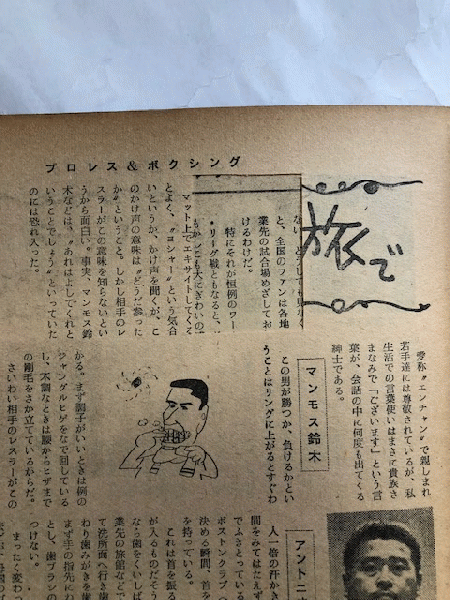 プロレス&ボクシング
旅で
と、全国のファンは各地
業先の試合場めざしてお
けるわけだ。
特にそれが恒例のワー
マット上でエキサイトしてくる
とよく、〝ヨンシャー〟という気合
いというか、かけ声を聞くが、こ
のかけ声の意味は〝どうだ参った
か〟ということ。しかし相手のレ
スラーがこの意味を知らないとい
うから面白い。事実、マンモス鈴
木などは、〝あれはよしてくれと
いうことでしょう〟といっていた
のには恐れ入った。
孝称〝エンチャン〟で親しまれ
若手達には尊敬されているが、私
生活での言葉使いはまさに貴族さ
まなみで「ございます」という言
葉が、会話の中に何度も出てくる
紳士である。
マンモス鈴木
この男が勝つか、負けるかとい
うことはリングに上がるとすぐわ
かる。まず調子がいいときは例の
ジャングルヒゲをなで回している
し、不調なときは腰からヒザまで
の剛毛をさか立てているからだ。
さいわい相手のレスラーがこの
アントニオ
人一倍の汗かき
間をみてはたえず
でふきとっている
ボストンクラブへ
決める瞬間、首を
を持っている。
これは首を振る
が入るものだそう
なら歯をくいしば
業先の旅館などで
て洗面所へ行き歯
わり歯みがきを歯
まず手の指先にわ
とし、歯ブラシの
つけない。
まったく変わっ